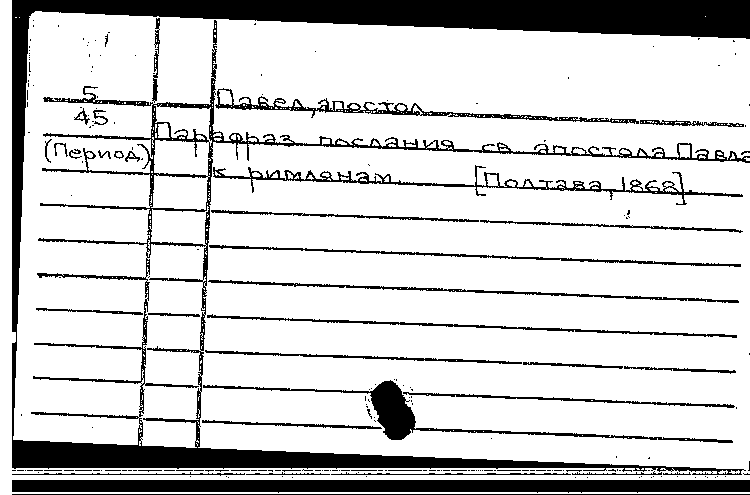 5
45.
(Период.)
Павел, апостол
Парафраз послания св. апостола Павла
к римлянам. [Полтава, 1868].